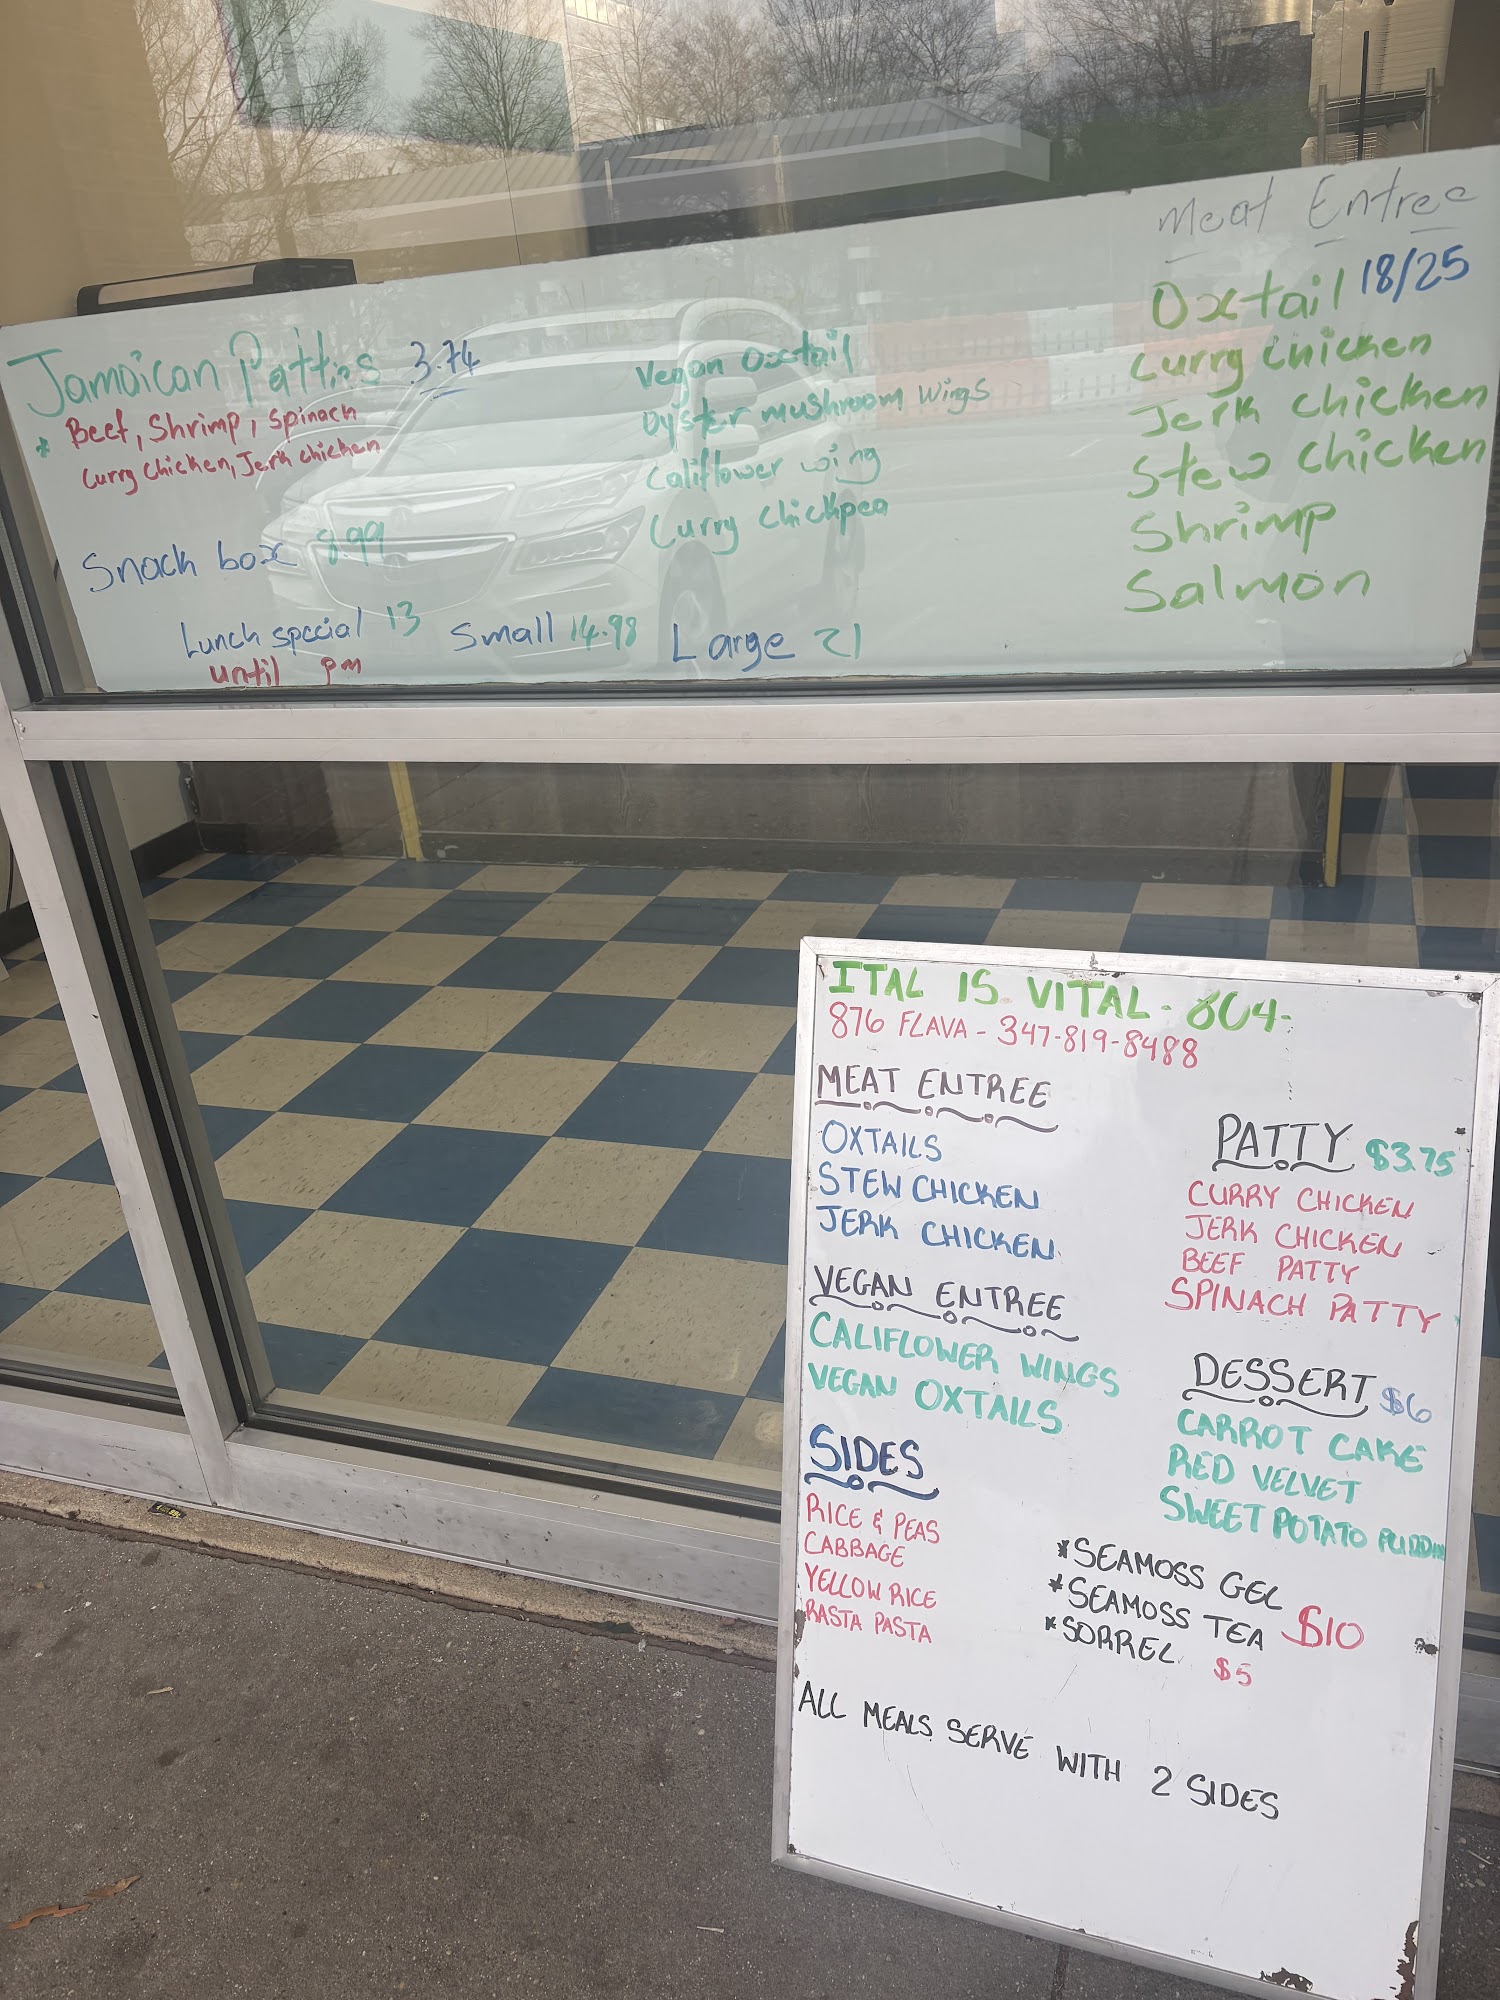 Jamaican Patties 3.74
* Beef, Shrimp, Spinach
Curry Chicken, Jerk chicken
Snack box 8.99
Lunch special 13
until pm
Small 14.98
Large 21
Vegan Oxtail
Oyster mushroom Wings
Califlower wing
Curry Chickpea
Meat Entree
Oxtail 18/25
Curry Chicken
Jerk Chicken
Stew Chicken
Shrimp
Salmon
ITAL IS VITAL - 804-
876 FLAVA - 347-819-8488
MEAT ENTREE
OXTAILS
STEW CHICKEN
JERK CHICKEN
VEGAN ENTREE
CALIFLOWER WINGS
VEGAN OXTAILS
SIDES
RICE & PEAS
CABBAGE
YELLOW RICE
RASTA PASTA
PATTY $3.75
CURRY CHICKEN
JERK CHICKEN
BEEF PATTY
SPINACH PATTY
DESSERT $6
CARROT CAKE
RED VELVET
SWEET POTATO
*SEAMOSS GEL
*SEAMOSS TEA $10
*SORREL $5
ALL MEALS SERVE WITH 2 SIDES